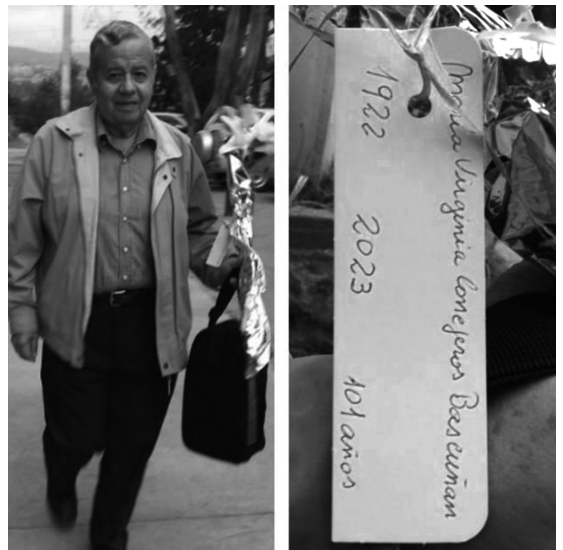 Maria Virginia Conejeros Bascuñan
1922 2023 101 años